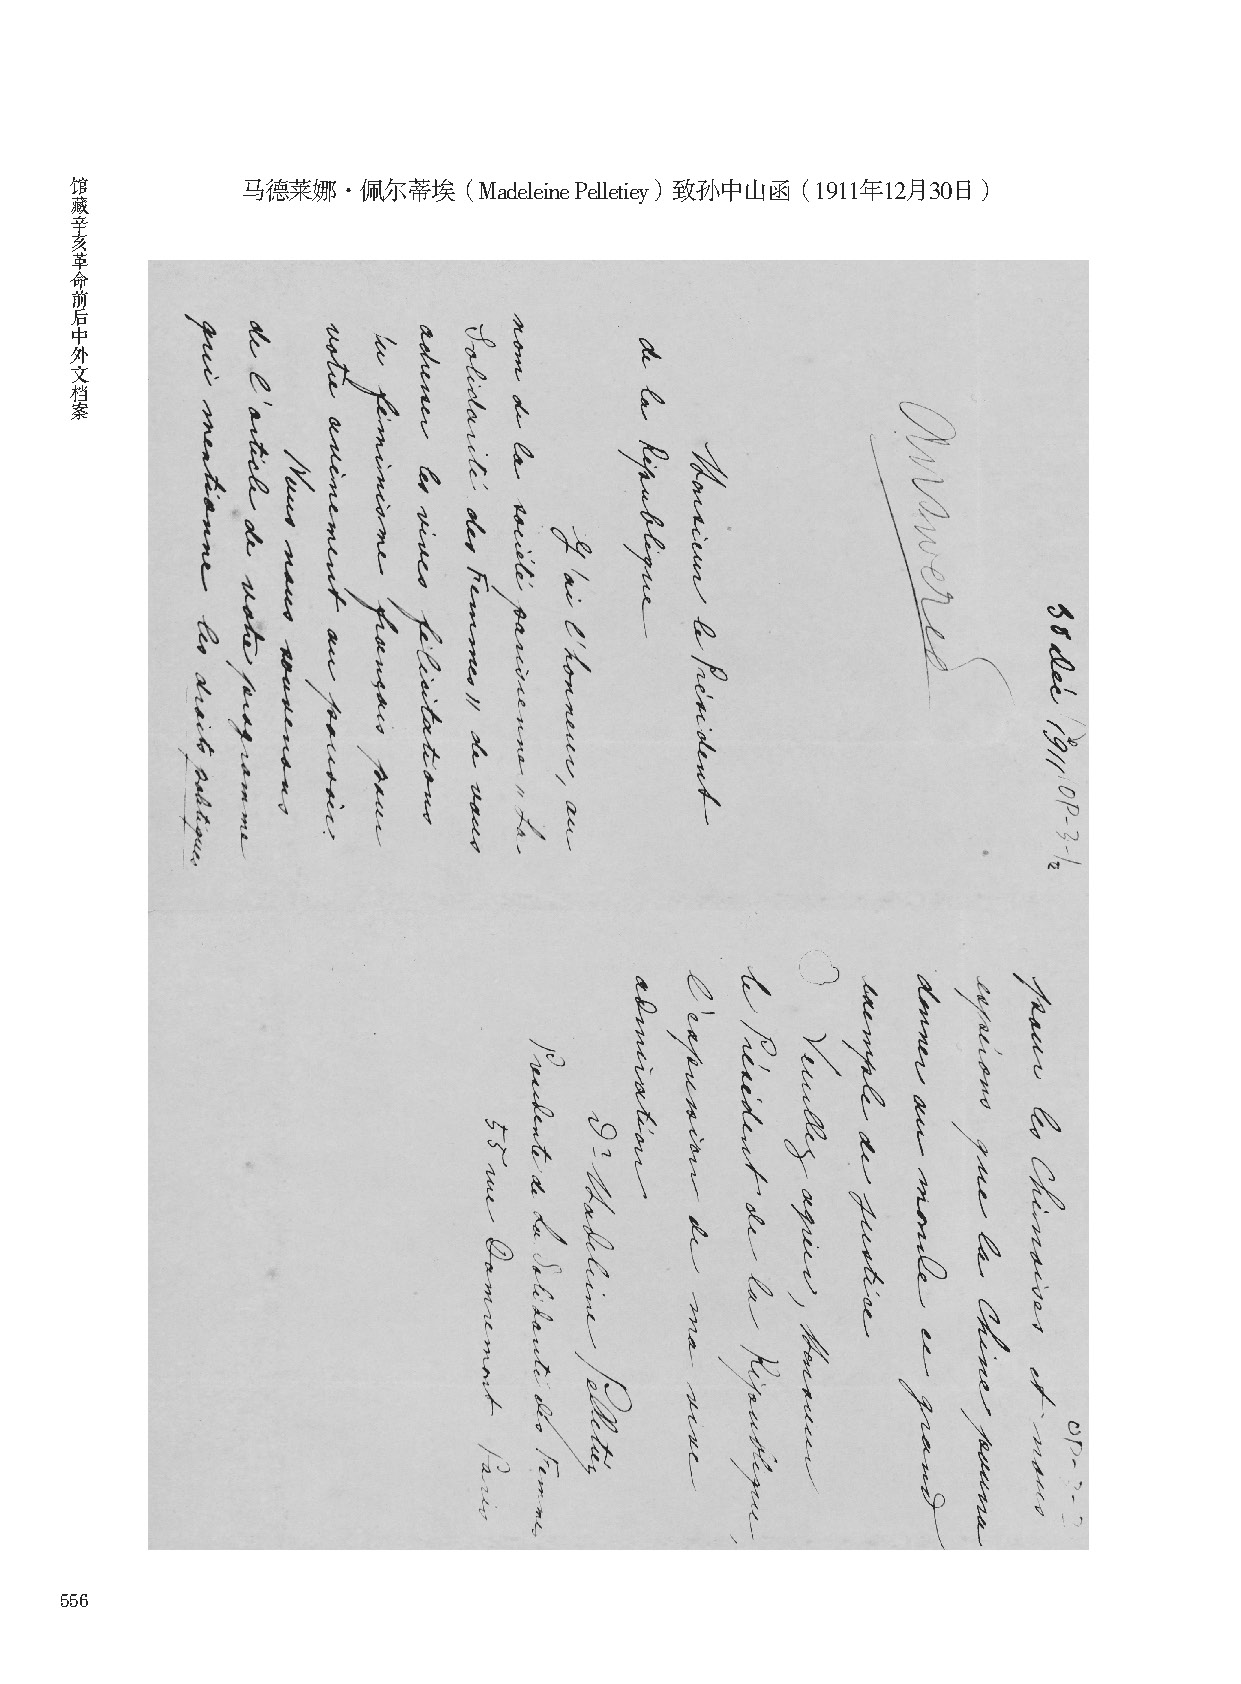 马德莱娜·佩尔蒂埃（Madeleine Pelletiey）致孙中山函（1911年12月30日）
馆藏辛亥革命前后中外文档案
30 Déc 1911 OP-3-1/2
Answered
Monsieur le Président
de la République
J'ai l'honneur, au
nom de la société parisienne "La
Solidarité des Femmes" de vous
adresser les vives félicitations
du féminisme français pour
votre avènement au pouvoir.
Nous nous souvenons
de l'article de votre programme
qui mentionne les droits politiques
OP-3-2
pour les Chinoises et nous
espérons que la Chine pourra
donner au monde ce grand
exemple de justice
Veuillez agréer, Monsieur
le Président de la République,
l'expression de ma vive
admiration
Dr Madeleine Pelletier
Présidente de La Solidarité des Femmes
55 rue Damremont Paris
556